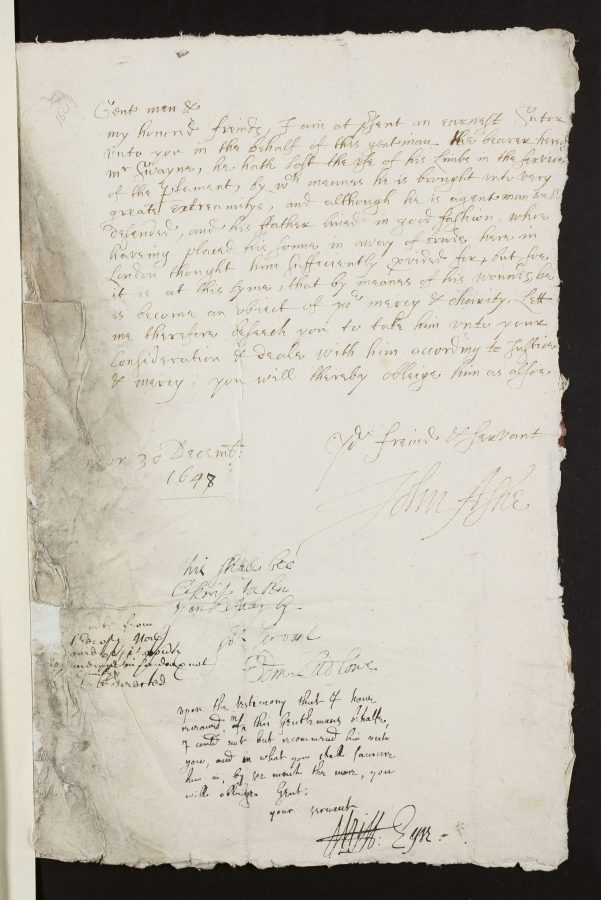 Gentlemen &
my honored freinds, I am at psent an earnest Sutor
vnto you in the behalf of this gentman the bearer hereof
Mr Swayne, he hath lost the vse of his Limbs in the service
of the Plament, by wch meanes he is brought into very
greate extreamitys, and although he is a gentman well
descended, and his ffather lived in good fashion, whoe
haveing placed his sonne in a way of trade here in
London thought him sufficiently pvided for, but soe
it is at this tyme, that by meanes of his wounds he
is become an object of yor mercy & charity. Lett
me therefore beseech you to take him vnto your
Consideration & deale with him according to Justice
& mercy, you will thereby obleige him as alsoe
Yor freind & servant
30 Decemb:
1648
John Ashe
this shall bee
taken
by
yor servant
Edm: Ludlowe
from
not
to be
vpon the testimony that I have
received, In this Gentlemans behalfe,
I could not but recommend him vnto
you, and in what you shall favoure
him in, by soe much the more, you
will oblige Gent:
your servant
Will: Eyre